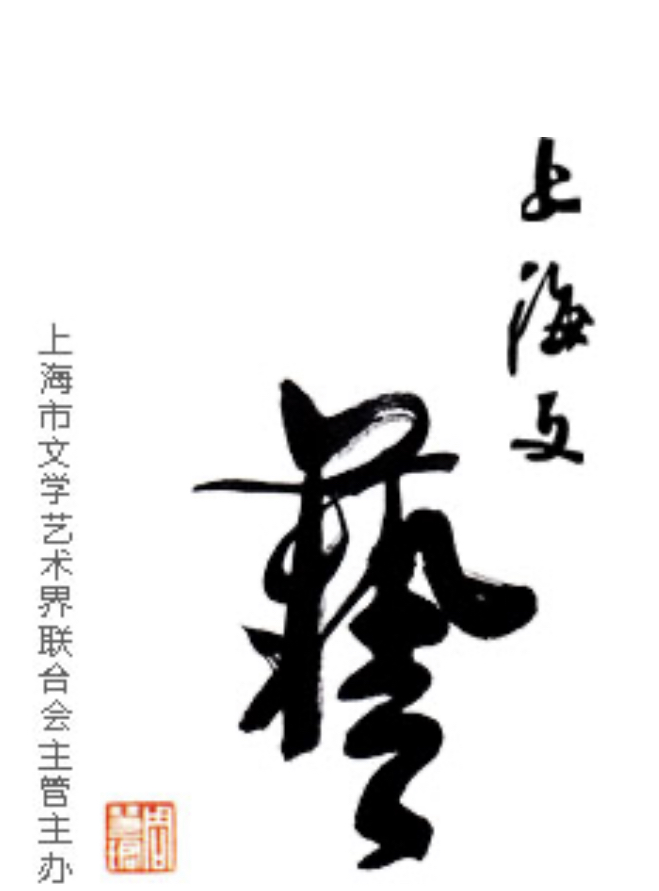 上海文
藝
上海市文学艺术界联合会主管主办